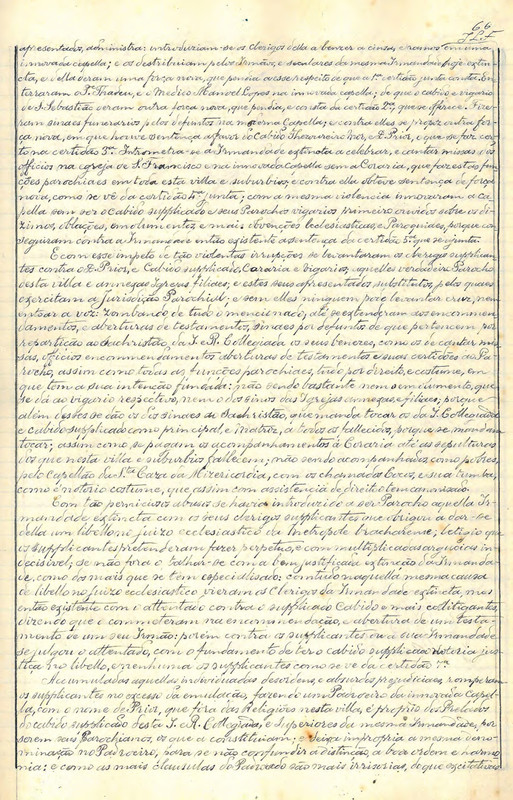 66
J L F
apresentados, administra: introduziam-se os clerigos della a benzer a cinza, e ramos em uma
innovada capella; e os destribuiam pelos Irmãos, e seculares da mesma Irmandade hoje extin-
cta, e della deram uma força nova, que pendia a esse respeito de que a 1ª certidão junta conta. En-
terraram o Pe. Tradeu, e o Medico Manoel Lopes na innovada capella; de que o cabido e vigario
de S. Sebastião deram outra força nova, que pendia, e consta da certidão 2ª, que se offerece. Fize-
ram sinaes funerarios pelos defuntos na mesma Capella; e contra elles se propoz outra for-
ça nova, em que houve sentença a favor do Cabido Thesoureiro mor, e D. Prior, o que se faz cer-
to na certidão 3ª. Intrometia-se a Irmandade extincta a celebrar, e cantar missas dos
officios na egreja de S. Francisco e na innovada Capella sem a Coraria, que faz estas fun-
ções parochiaes em toda esta villa e suburbios; e contra ella obteve sentença de força
nova, como se vê da certidão 4ª junta; com a mesma violencia innovaram a ca-
pella sem ser o Cabido supplicado e seus Parochos vigarios primeiro ouvidos sobre os di-
zimos, oblações, emolumentos, e mais obvenções ecclesiasticas, e Paroquiaes, porque con-
seguiram contra a Irmandade então existente a sentença da certidão 5ª que se ajunta.
E com esse impeto e tão violentas irrupções se levantaram os clerigos supplican-
tes contra o D. Prior, e Cabido supplicado, Coraria e Vigarios, aquelles verdadeiro Parocho
desta villa e annexas Igrejas filiaes; e estes seus apresentados substitutos, pelos quaes
exercitam a jurisdição Parochial; e sem elles ninguem pode levantar cruz, nem
entoar a voz: Zombando de tudo o mencionado, até se extenderam aos encommen-
damentos, e aberturas de testamentos, sinaes por defuntos de que pertencem por
repartição ao sachristão, da I. e R. Collegiada os seus benezes, como os de cantar mis-
sas, officios encommendamentos aberturas de testamentos e suas certidões ao Pa-
rocho, assim como todas as funcções parochiaes, tudo por direito, e costume, em
que tem a sua intenção fundada: não sendo bastante nem o emolumento, que
se dá ao vigario respectivo, nem o dos sinos das Igrejas annexas, e filiaes; porque
além destes se dão os dos sinaes ao Sachristão, que manda tocar os da I. Collegiada
e cabido supplicado como principal, e Matriz, a todos os fallecidos, porque se mandam
tocar; assim como se pagam os acompanhamentos á Coraria até as sepulturas
dos que nesta villa e suburbios fallecem; não sendo acompanhados, como pobres,
pelo Capellão da Sta. Caza da Misericordia, com os chamados Ecos, e sua tumba,
como é notorio costume, que assim com assistencia de direito tem canonisado.
Com tão perniciosos abusos se havia introduzido a ser Parocho aquella Ir-
mandade extincta com os seus clerigos supplicantes que obrigou a dar-se
della um libello no juizo ecclesiastico da Metropole bracharense; letigio que
os supplicantes pretenderam fazer perpetuo, e com multiplicadas arguicias in-
decisivel; se não fora o talhar-se com a bem justificada extincção da Irmanda-
de, como dos mais que se tem especialisado; comtudo naquella mesma causa
de libello no juizo ecclesiastico vieram os Clerigos da Irmandade extincta, mas
então existente com o attentado contra o supplicado Cabido e mais collitigantes,
dizendo que o commeteram na encommendação, e abertura de um testa-
mento de um seu Irmão: porém contra os supplicantes ou a sua Irmandade
se julgou o attentado, com o fundamento de ter o cabido supplicado notoria jus-
tiça no libello, e nenhuma os supplicantes como se vê da certidão 7ª.
Accumuladas aquellas individuadas desordens, e absurdos prejudiciaes, romperam
os supplicantes no excesso da emulação, fazendo um Padroeiro da innovada Capel-
la, com o nome de Prior, que fora das Religiões nesta villa, é proprio dos Prelados
do cabido supplicado desta I. e R. Collegiada, e Superiores da mesma Irmandade, por
serem seus Parochianos, os que a constituiam; e ficava impropria a mesma deno-
minação no Padroeiro, para se não confundir a distincção, a boa ordem e harmo-
nia: e como as mais clausulas do Padroado são mais irrisorias, do que excitativas